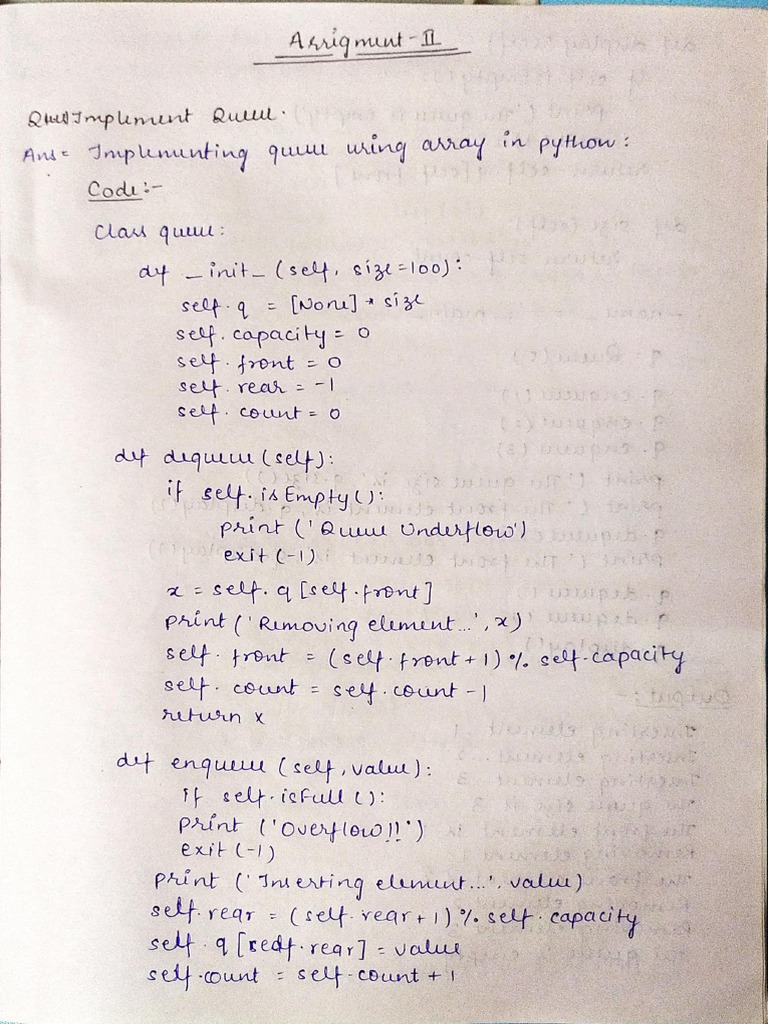 Assigment-II
Ques) Implement Queue.
Ans = Implementing queue using array in python:
Code:-
Class queue:
def _init_ (self, size=100):
self.q = [None] * size
self.capacity = 0
self.front = 0
self.rear = -1
self.count = 0
def dequeue (self):
if self.isEmpty():
print ('Queue Underflow')
exit (-1)
x = self.q [self.front]
print ('Removing element...', x)
self.front = (self.front + 1) % self.capacity
self.count = self.count - 1
return x
def enqueue (self, value):
if self.isFull ():
print ('Overflow!!')
exit (-1)
print ('Inserting element...', value)
self.rear = (self.rear + 1) % self.capacity
self.q [self.rear] = value
self.count = self.count + 1